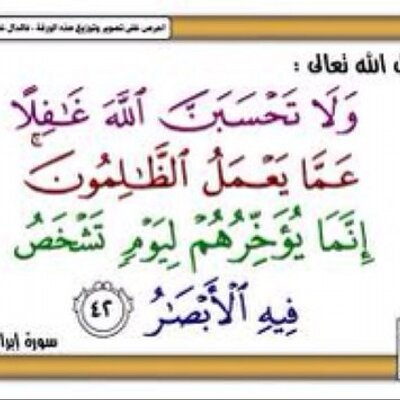 احرص على تصوير وتوزيع هذه الورقة ، فالدال
الله تعالى :
وَلَا تَحْسَبَنَّ ٱللَّهَ غَٰفِلًا
عَمَّا يَعْمَلُ ٱلظَّٰلِمُونَۚ
إِنَّمَا يُؤَخِّرُهُمْ لِيَوْمٍ تَشْخَصُ
فِيهِ ٱلْأَبْصَٰرُ ٤٢
سورة إبرا